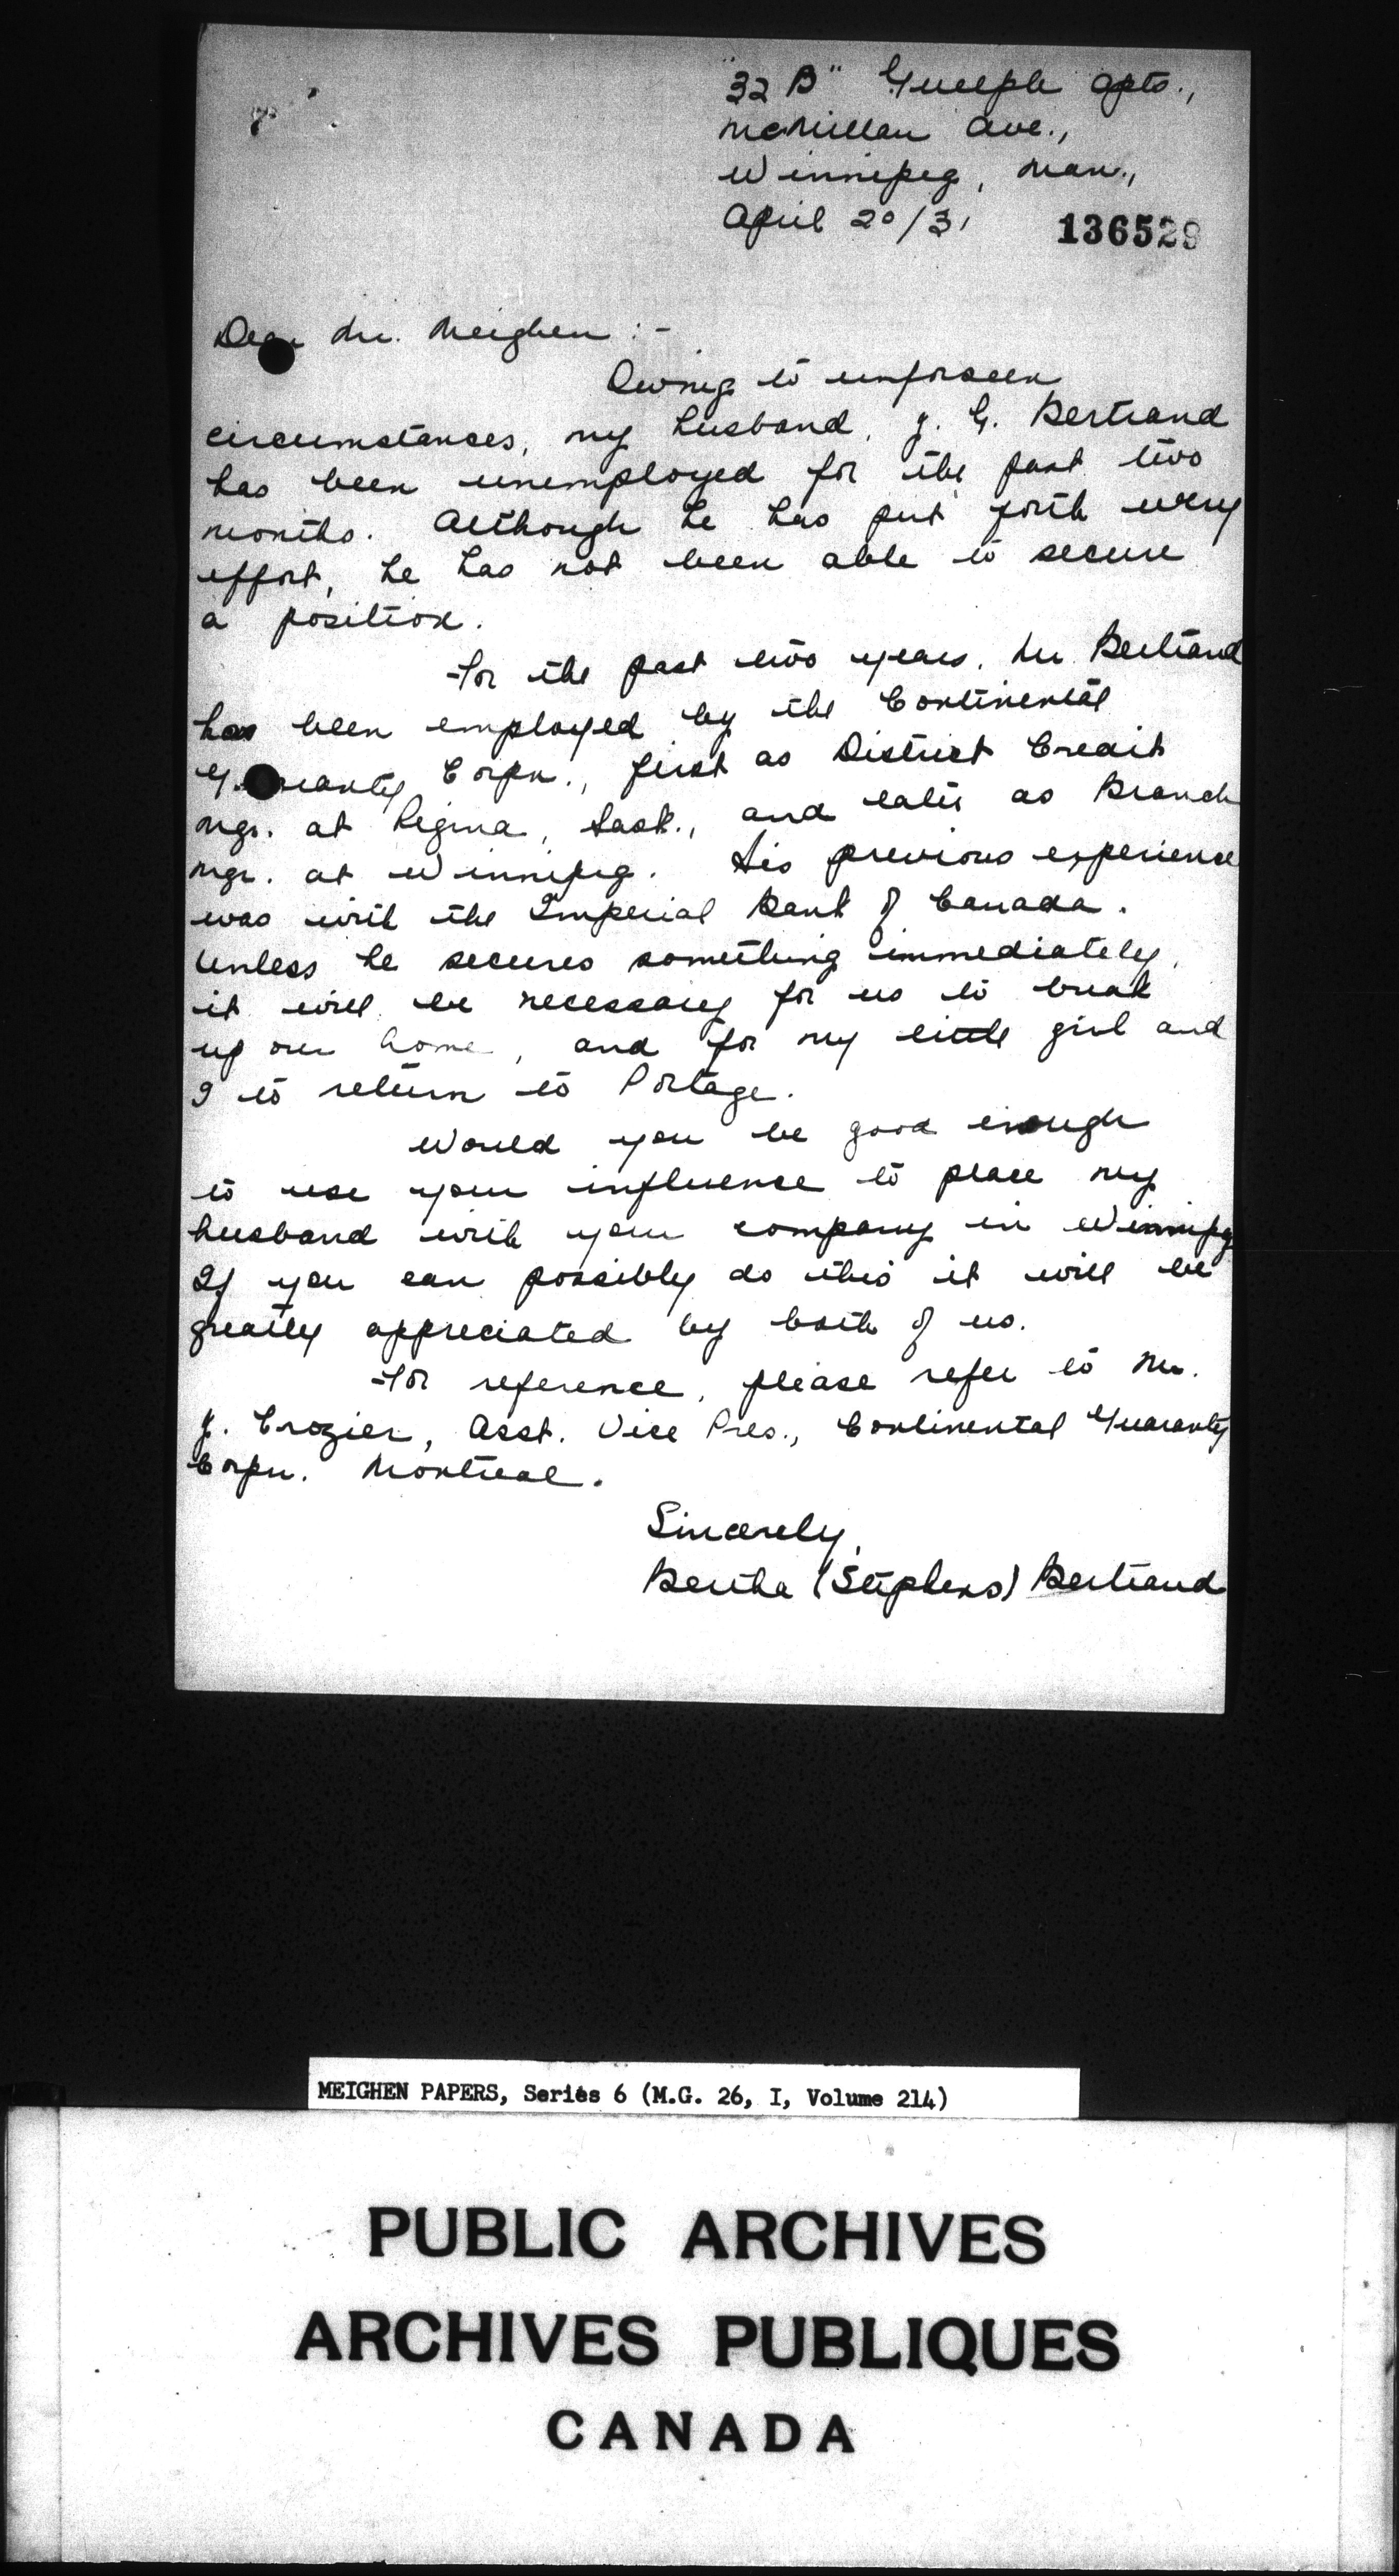 "32 B" Guelph Apts.,
McMillan Ave.,
Winnipeg, Man.,
April 20/31
136529
Dear Mr. Meighen :-
Owing to unforseen
circumstances, my husband, J. G. Bertrand
has been unemployed for the past two
months. Although he has put forth every
effort, he has not been able to secure
a position.
For the past two years, Mr Bertrand
has been employed by the Continental
Guaranty Corpn., first as District Credit
Mgr. at Regina, Sask., and later as Branch
Mgr. at Winnipeg. His previous experience
was with the Imperial Bank of Canada.
Unless he secures something immediately,
it will be necessary for us to break
up our home, and for my little girl and
I to return to Portage.
Would you be good enough
to use your influence to place my
husband with your company in Winnipeg
If you can possibly do this it will be
greatly appreciated by both of us.
For reference, please refer to Mr.
J. Crozier, Asst. Vice Pres., Continental Guaranty
Corpn. Montreal.
Sincerely,
Bertha (Stephens) Bertrand
MEIGHEN PAPERS, Series 6 (M.G. 26, I, Volume 214)
PUBLIC ARCHIVES
ARCHIVES PUBLIQUES
CANADA